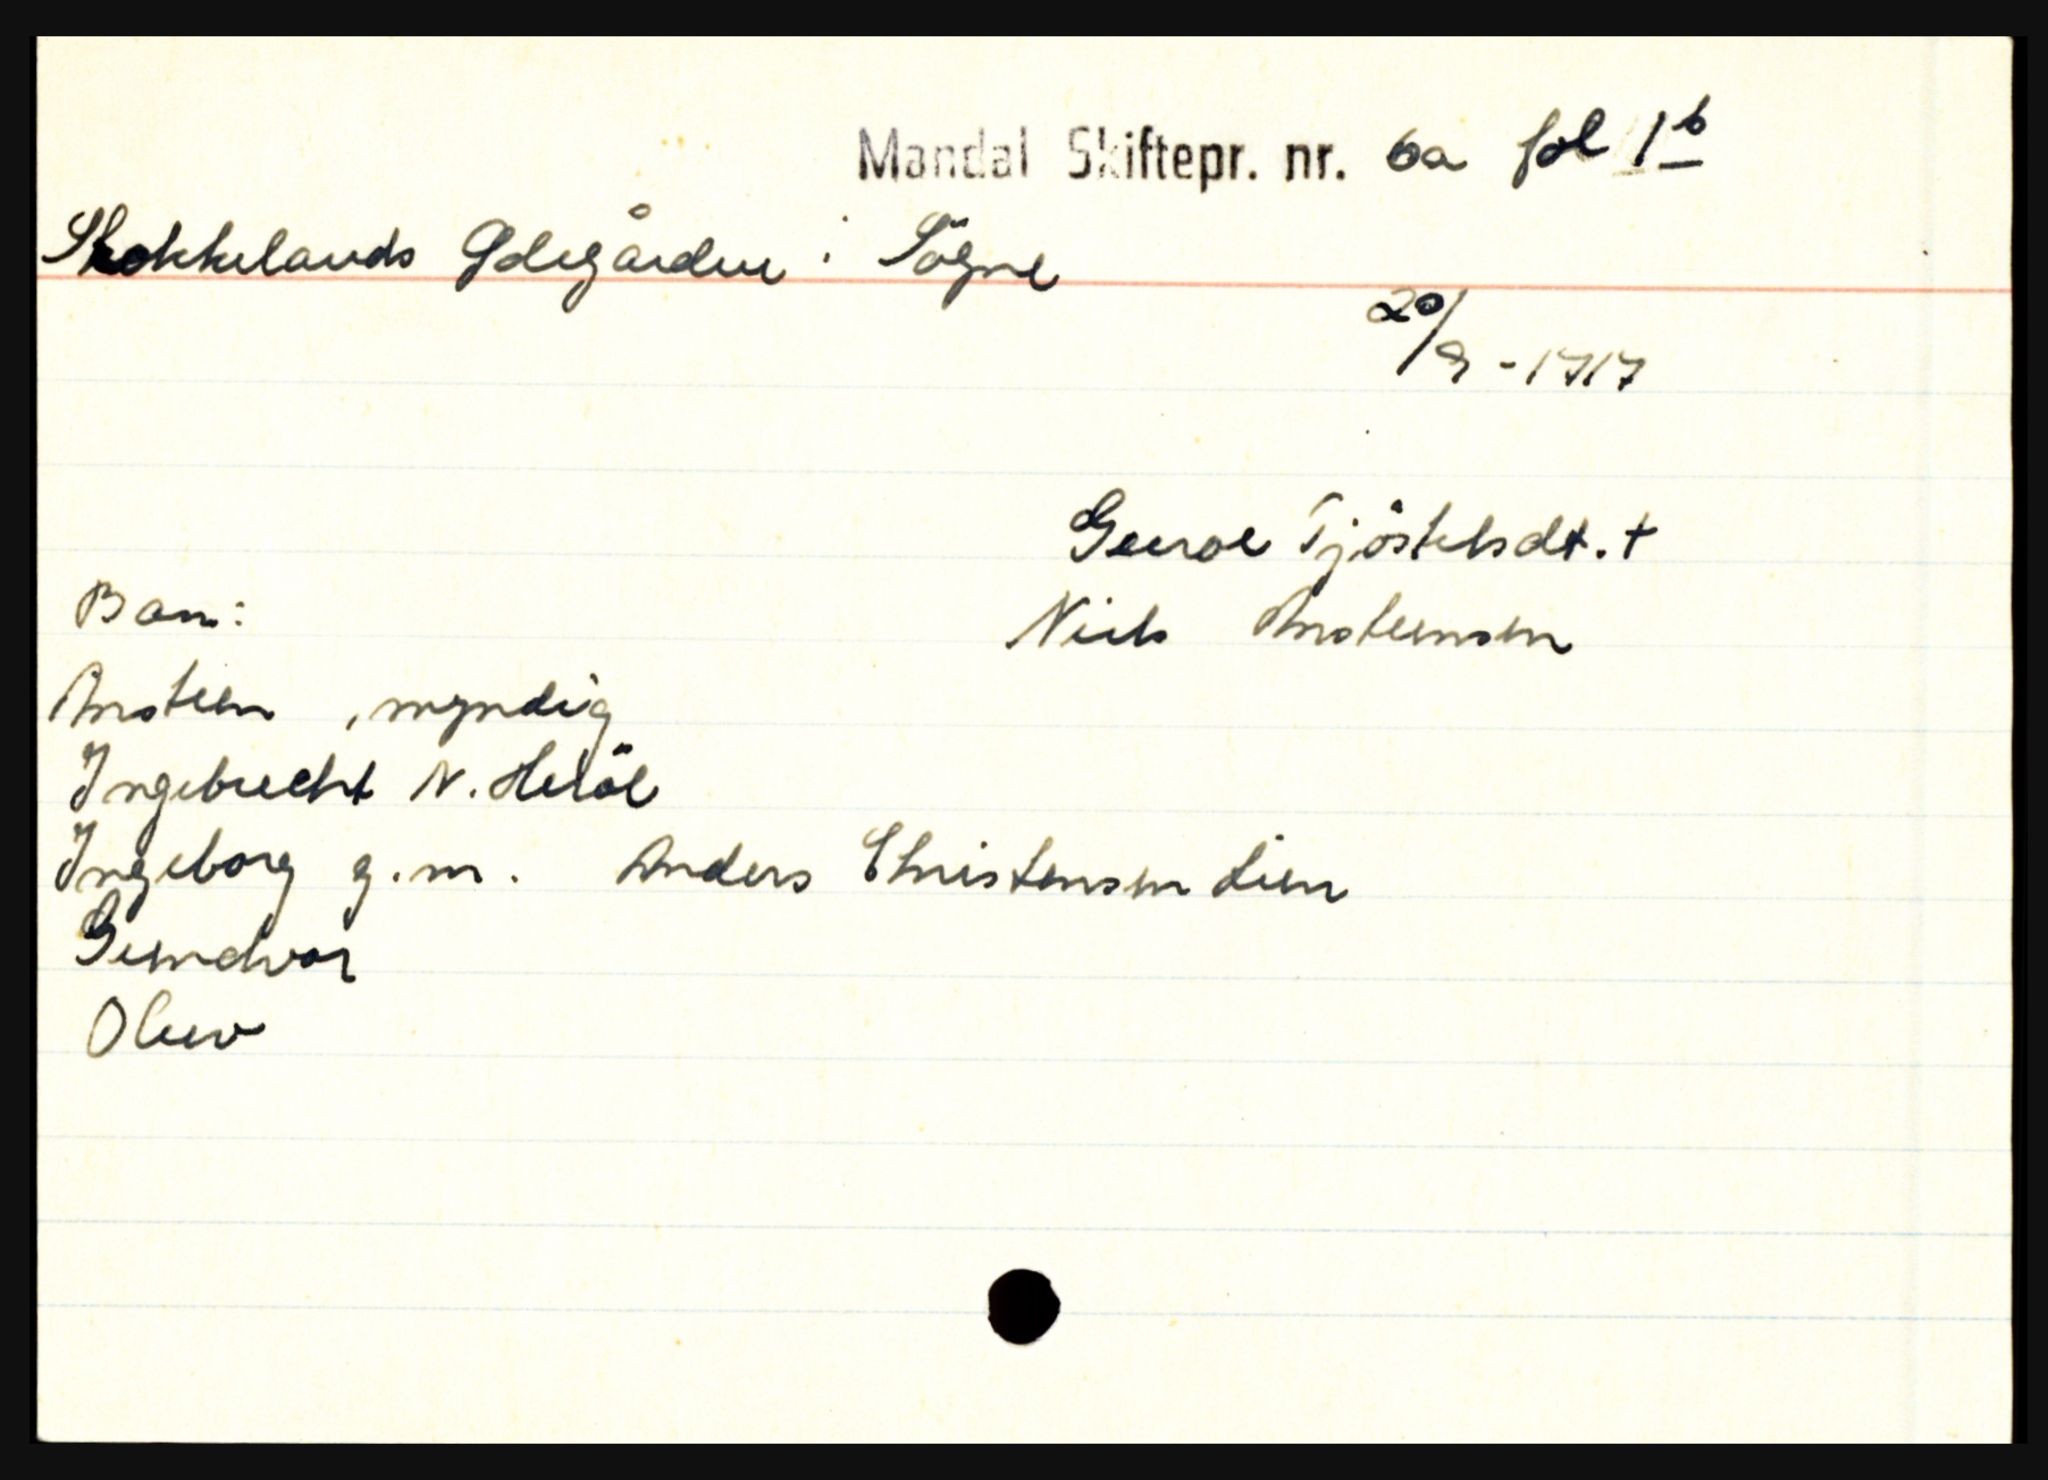 Mandal Skiftepr. nr. 6a fol 1b
Stokkelands Ødegården i Sögne
20/9 - 1717
Guroe Tjöstelsdt. †
Barn:
Niels Ansteensen
Ansteen , myndig
Ingebrecht N. Helöe
Ingeborg g.m. Anders Christensen Lien
Gundvor
Oluv